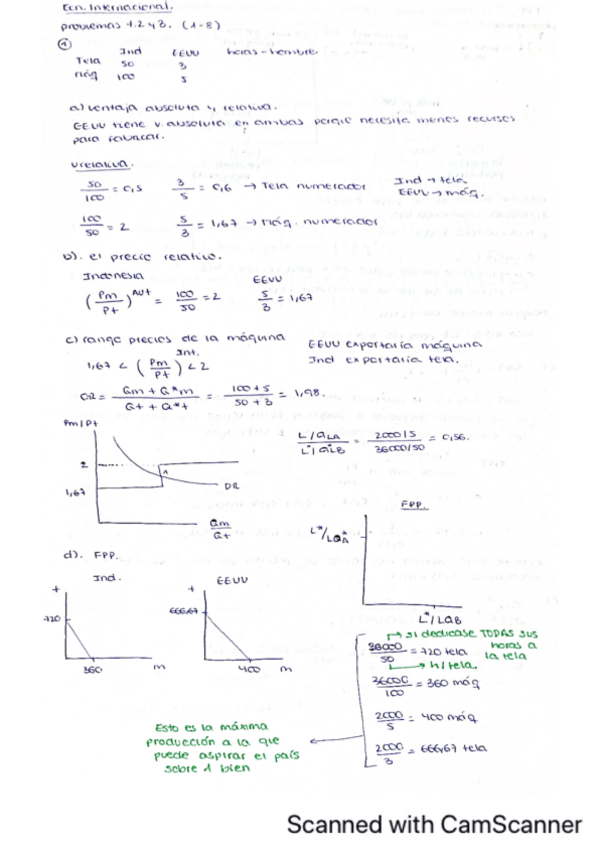 Ecn. Internacional.
problemas 1.2 y 3. (1-8)
① Ind EEUU horas-hombre
Tela 50 3
máq 100 5
a) ventaja absoluta y relativa.
EEUU tiene v. absoluta en ambas porque necesita menos recursos
para fabricar.
v relativa.
50/100 = 0,5 3/5 = 0,6 → Tela numerador Ind → tela.
EEUU → máq.
100/50 = 2 5/3 = 1,67 → máq. numerador
b). el precio relativo.
Indonesia EEUU
(Pm/Pt)^Aut = 100/50 = 2 5/3 = 1,67
c) rango precios de la máquina EEUU exportaría máquina
1,67 < (Pm/Pt)^Int. < 2 Ind exportaría tela.
OR = Qm + Q*m / Qt + Q*t = 100+5 / 50+3 = 1,98.
L/aLA / L*/a*LB = 2000/5 / 36000/50 = 0,56.
Pm/Pt
2
1,67
DR
Qm/Qt
FPP.
L*/LQA
L*/LQB
d). FPP.
Ind. EEUU
t t
720 666,67
360 m 400 m
→ si dedicase TODAS sus
horas a
la tela
36000/50 = 720 tela
→ h/tela.
36000/100 = 360 máq
2000/5 = 400 máq
2000/3 = 666,67 tela
Esto es la máxima
producción a la que
puede aspirar el país
sobre 1 bien
Scanned with CamScanner